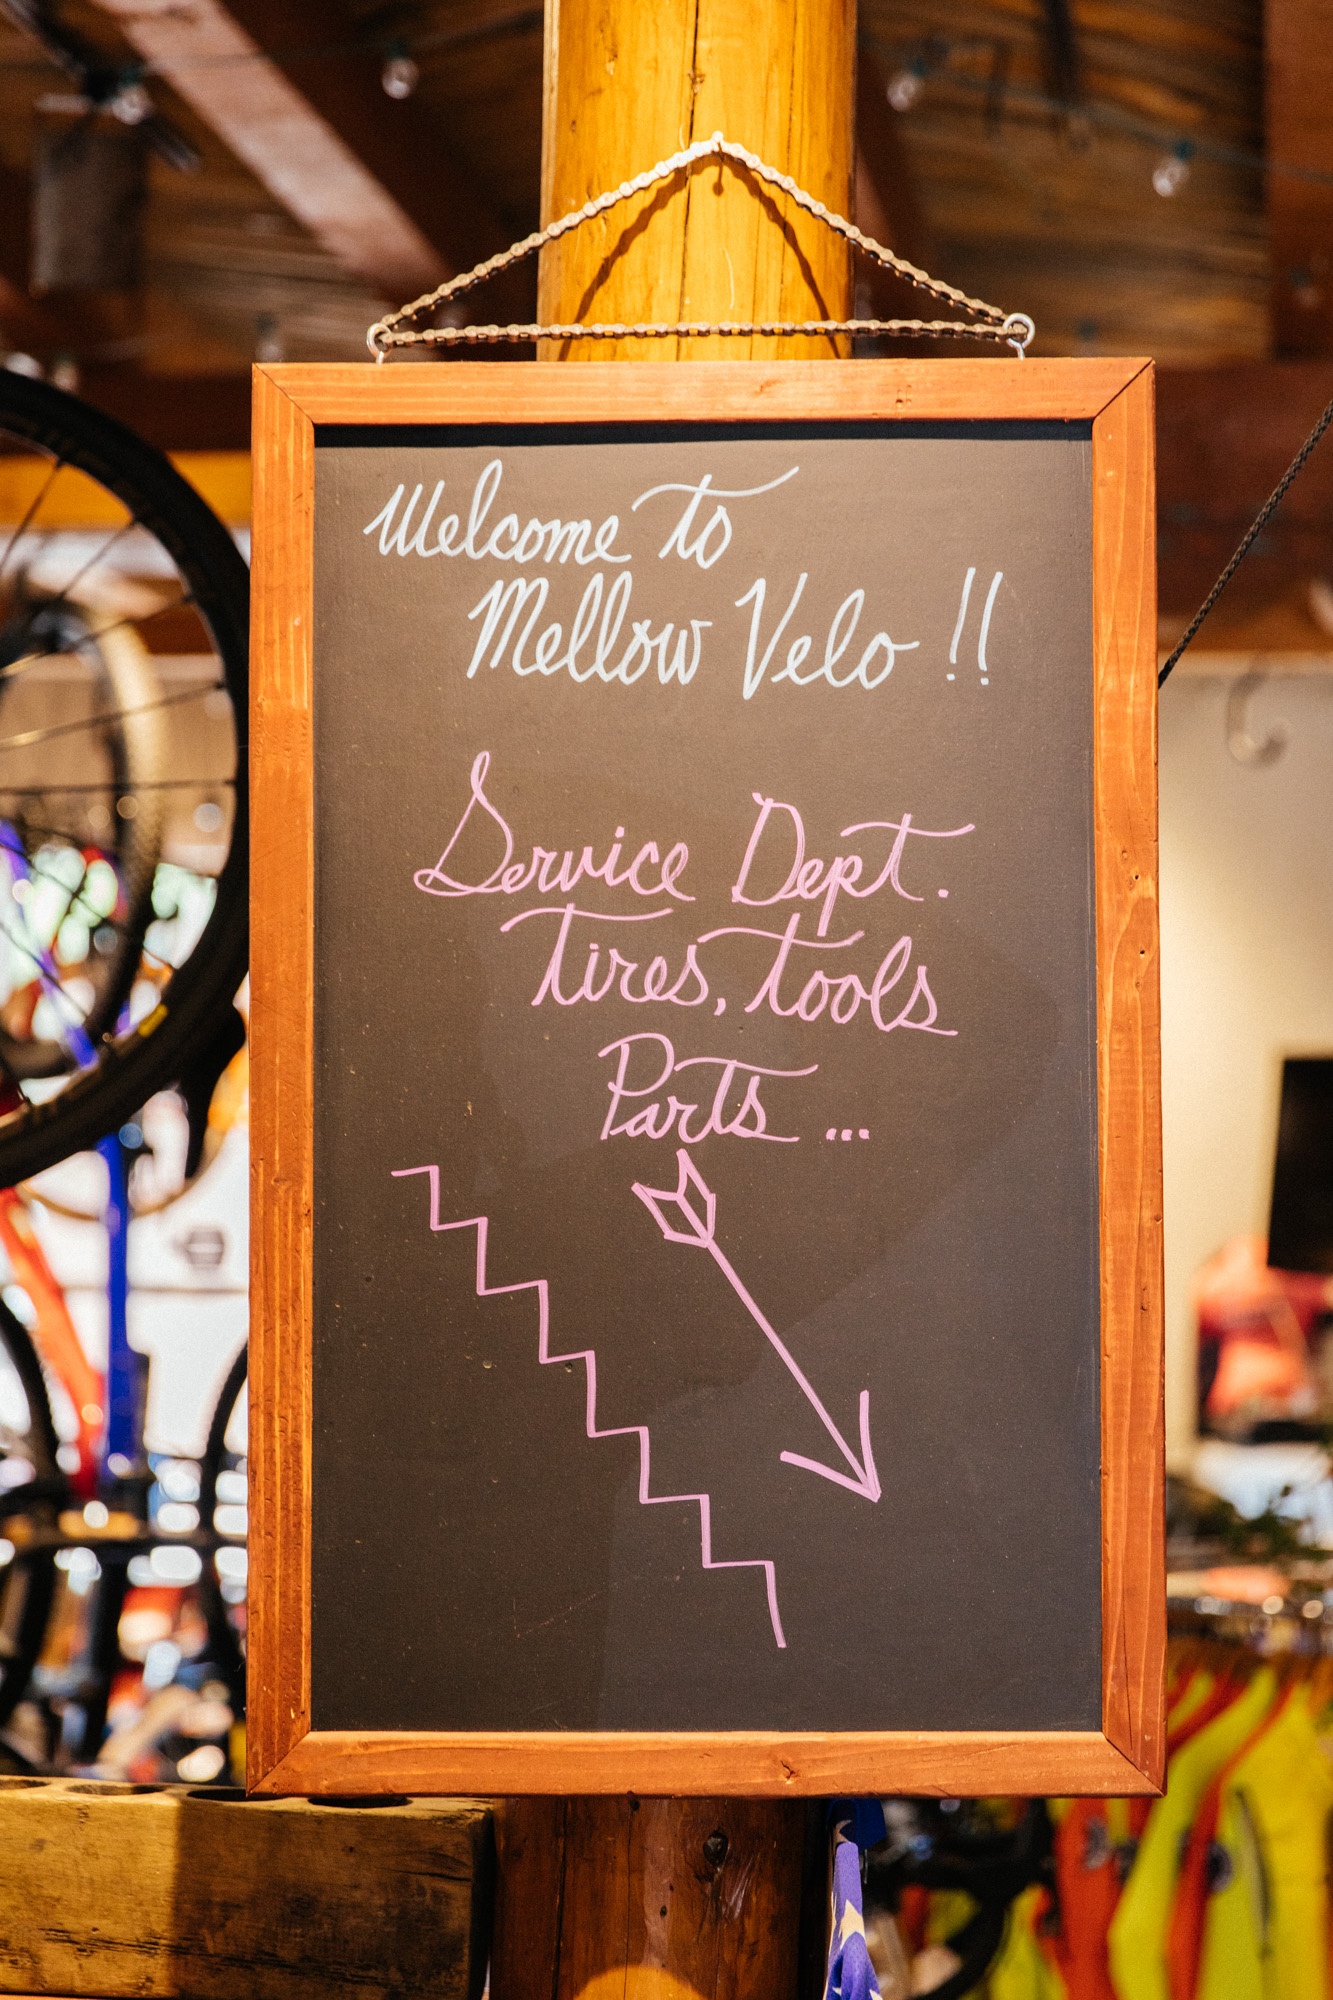 Welcome to
Mellow Velo !!
Service Dept.
Tires, Tools
Parts ...